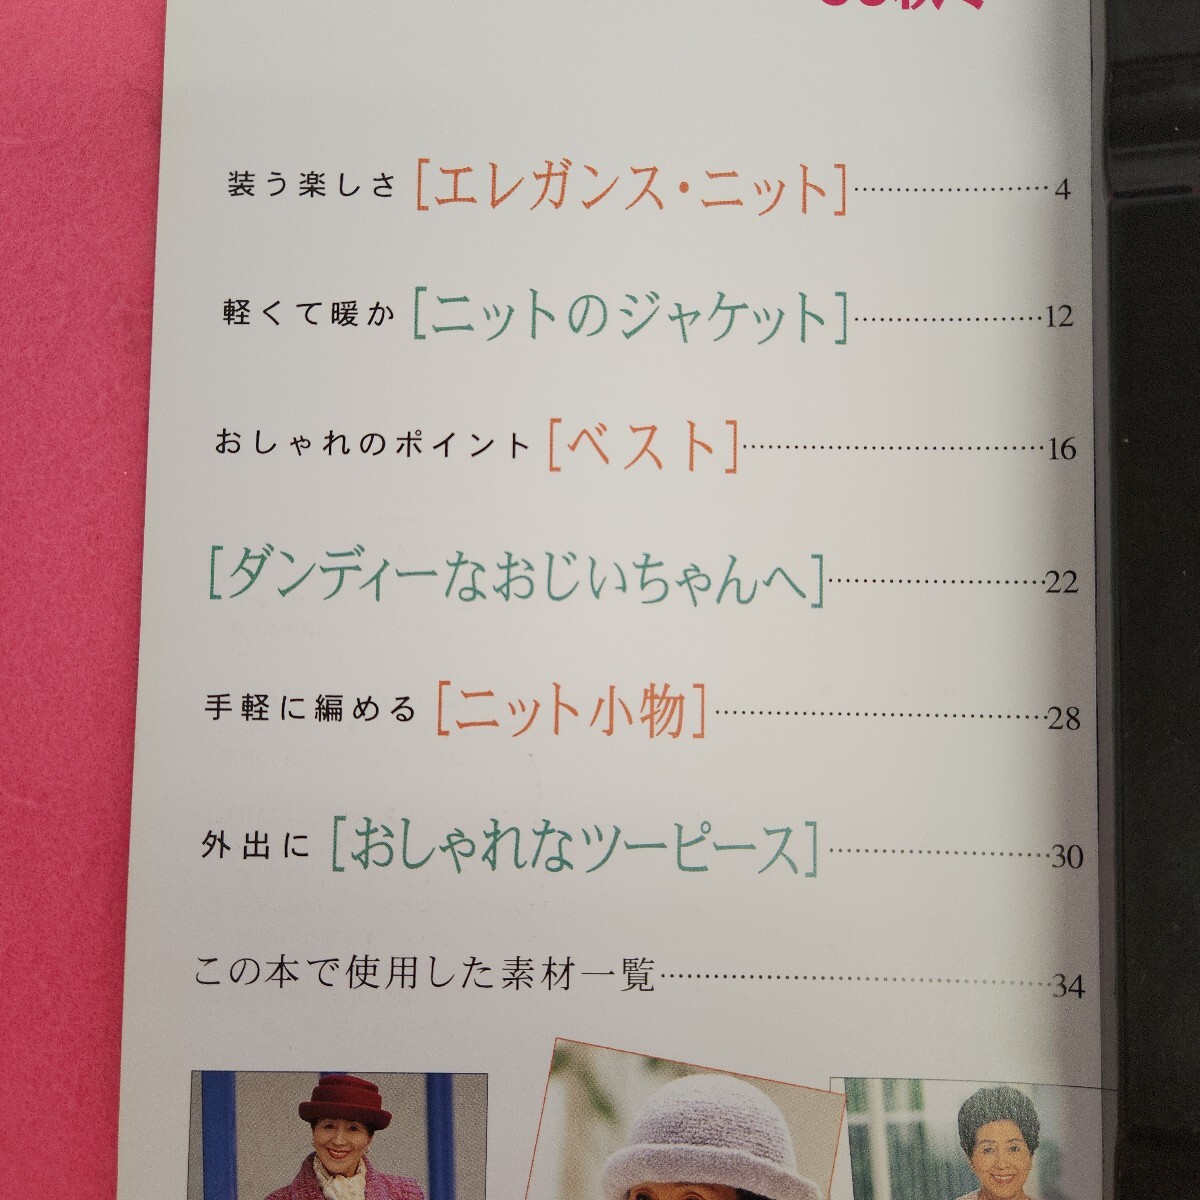 装う楽しさ[エレガンス・ニット]……………………4
軽くて暖か[ニットのジャケット]……………………12
おしゃれのポイント[ベスト]……………………16
[ダンディーなおじいちゃんへ]……………………22
手軽に編める[ニット小物]……………………28
外出に[おしゃれなツーピース]……………………30
この本で使用した素材一覧……………………34